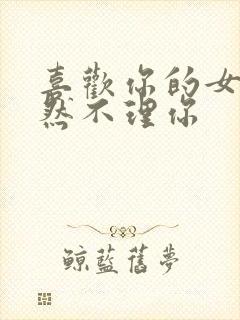 喜歡你的女
然不理你
鯨藍舊夢